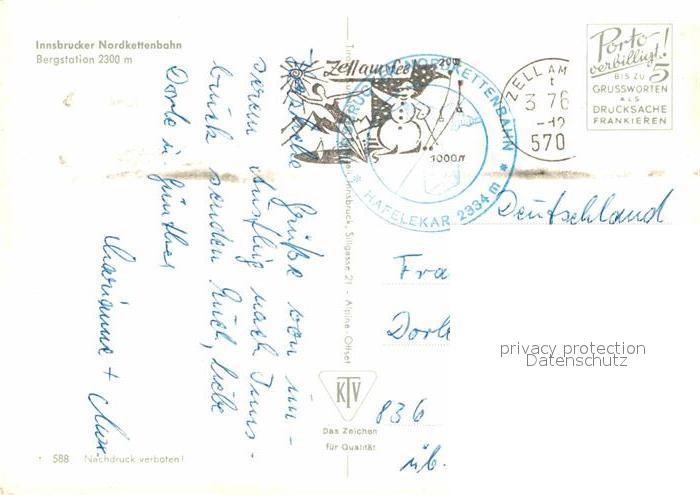 Innsbrucker Nordkettenbahn
Bergstation 2300 m
Herzliche Grüße von un-
serem Ausflug nach Inns-
bruck senden Euch, liebe
Dorle u. Günther
Marianne + Max.
Zell am See
2000
1000 m
NORDKETTENBAHN
* HAFELEKAR 2334 m *
ZELL AM
3 76
-12
570
Porto-
verbilligt!
BIS ZU 5
GRUSSWORTEN
ALS
DRUCKSACHE
FRANKIEREN
Innsbruck, Sillgasse 21 - Alpine-Offset
Deutschland
Fra
Dorle
836
üb.
privacy protection
Datenschutz
KTV
Das Zeichen
für Qualität
588 Nachdruck verboten!